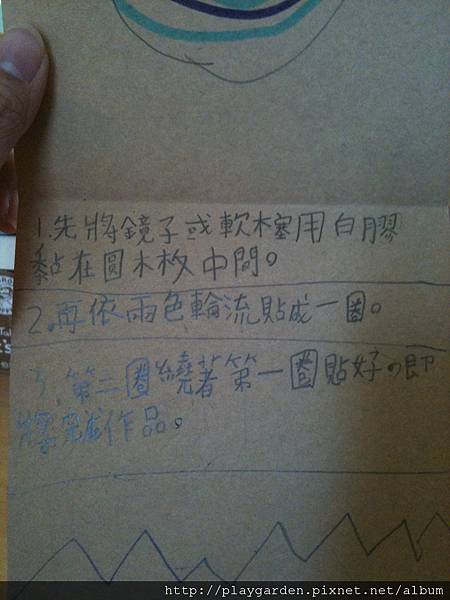 1.先將鏡子或軟木塞用白膠
黏在圓木板中間。
2.再依兩色輪流貼成一圈。
3.第二圈繞著第一圈貼好,即
完成作品。
http://playgarden.pixnet.net/album